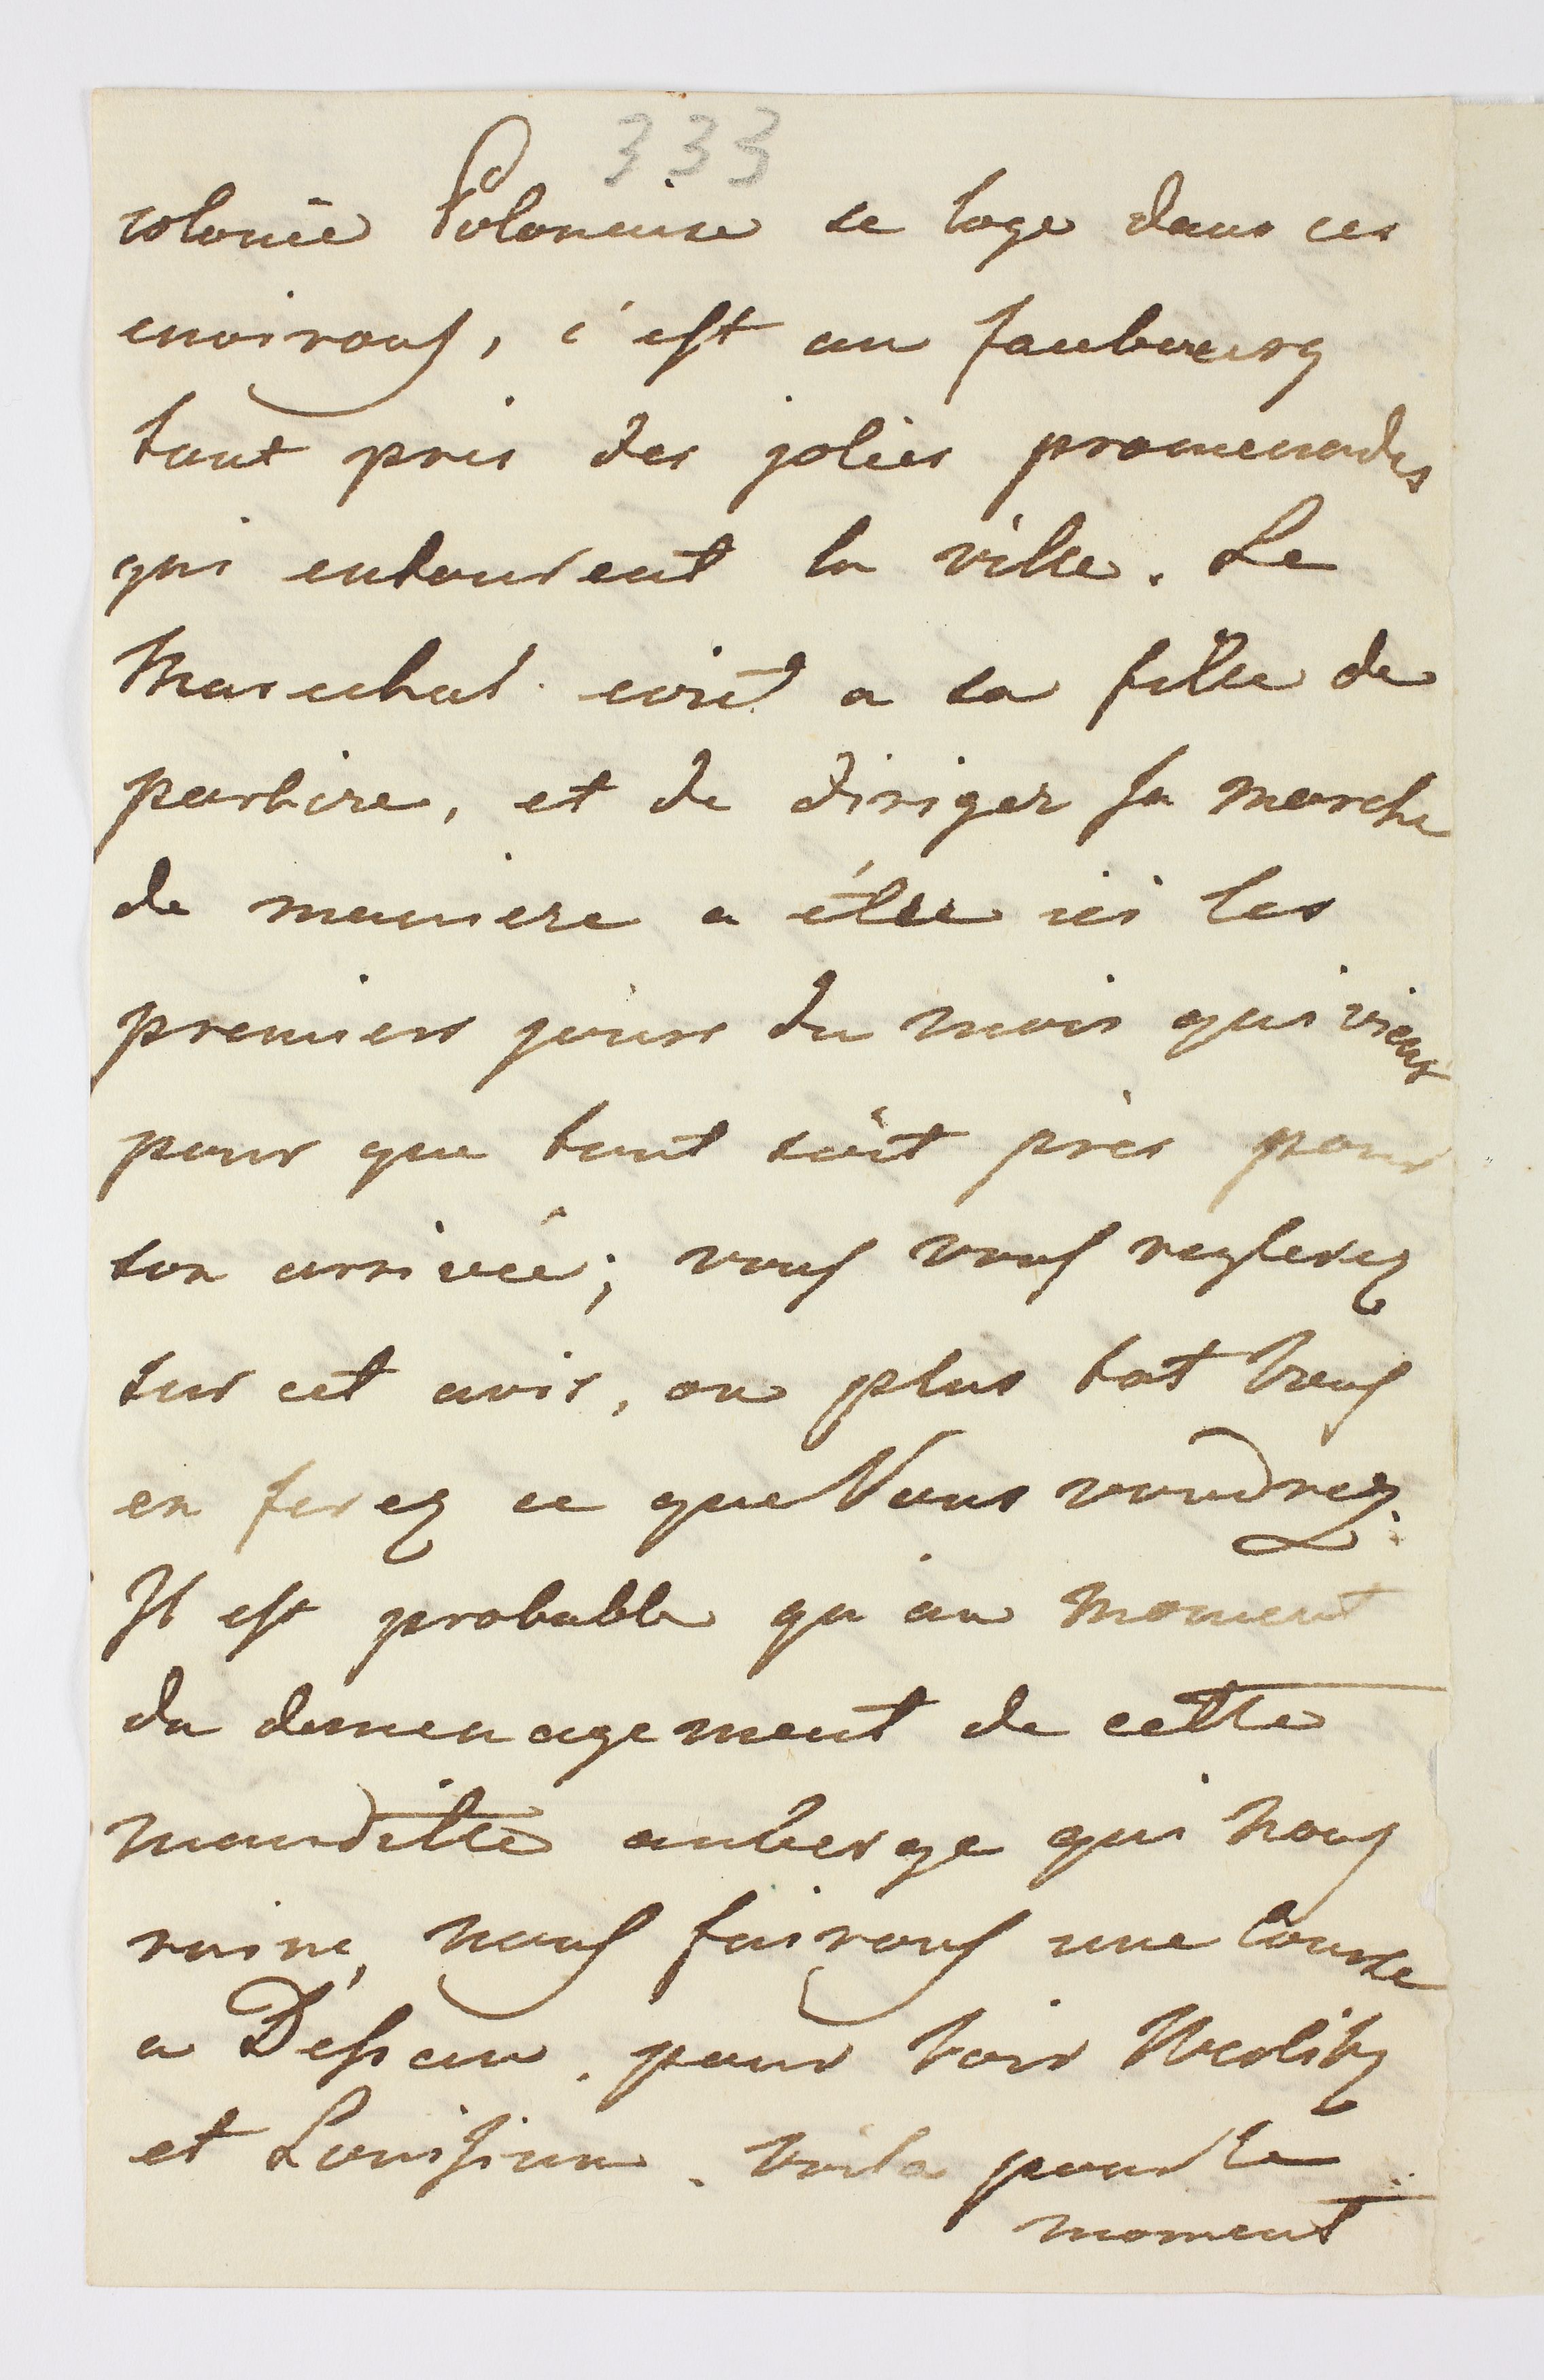 333
colonie Polonaise se loge dans ces
environs, c'est un faubourg
tout pres des jolies promenades
qui entourent la ville. Le
Marechal ecrit a sa fille de
partire, et de diriger sa marche
de maniere a étre ici les
premiers jours du mois qui vient
pour que tout soit près pour
son arrivée; vous vous reglerez
sur cet avis, ou plus tot Vous
en ferez ce que Vous voudrez.
Il est probable qu'au moment
du demenagement de cette
mauditte auberge qui nous
ruine, nous fairons une course
a Dessau, pour voir Werlitz
et Louisium. Voila pour le
moment